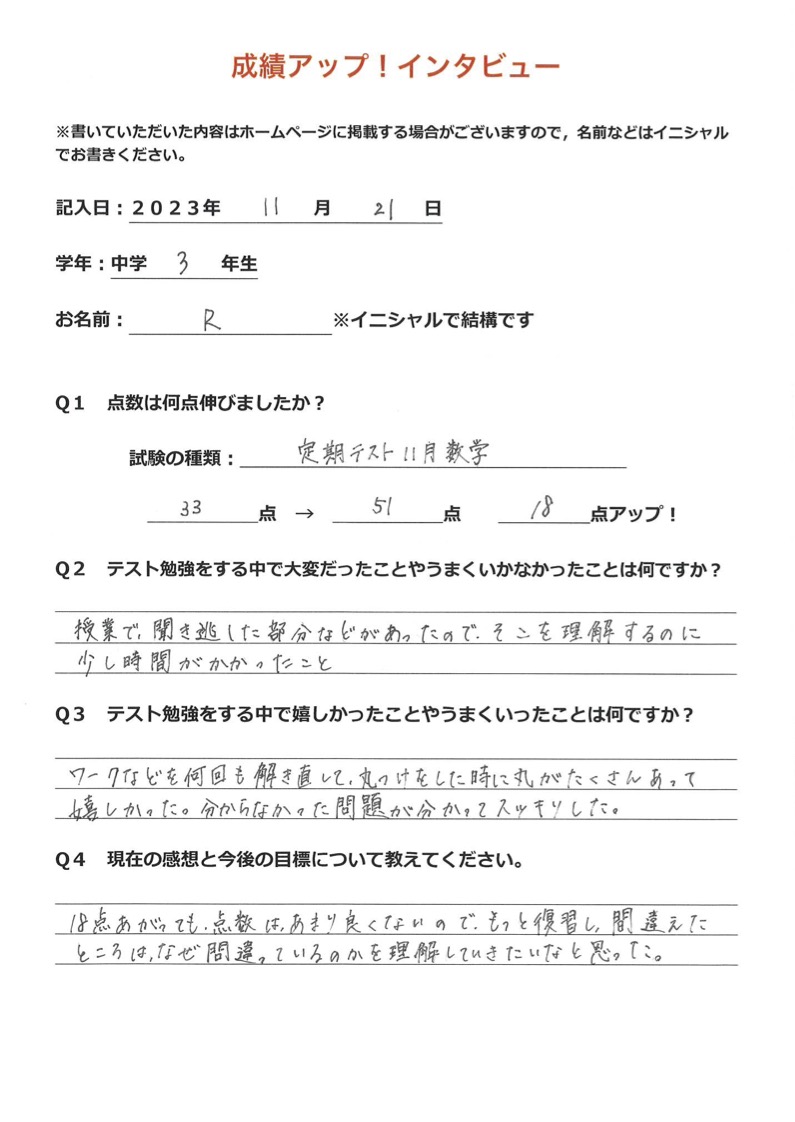 成績アップ！インタビュー
※書いていただいた内容はホームページに掲載する場合がございますので，名前などはイニシャル
でお書きください。
記入日：２０２３年 11 月 21 日
学年：中学 3 年生
お名前： R ※イニシャルで結構です
Ｑ１ 点数は何点伸びましたか？
試験の種類： 定期テスト11月数学
33 点 → 51 点 18 点アップ！
Ｑ２ テスト勉強をする中で大変だったことやうまくいかなかったことは何ですか？
授業で、聞き逃した部分などがあったので、そこを理解するのに
少し時間がかかったこと
Ｑ３ テスト勉強をする中で嬉しかったことやうまくいったことは何ですか？
ワークなどを何回も解き直して、丸つけをした時に丸がたくさんあって
嬉しかった。分からなかった問題が分かってスッキリした。
Ｑ４ 現在の感想と今後の目標について教えてください。
18点あがっても、点数は、あまり良くないので、もっと復習し、間違えた
ところは、なぜ間違っているのかを理解していきたいなと思った。